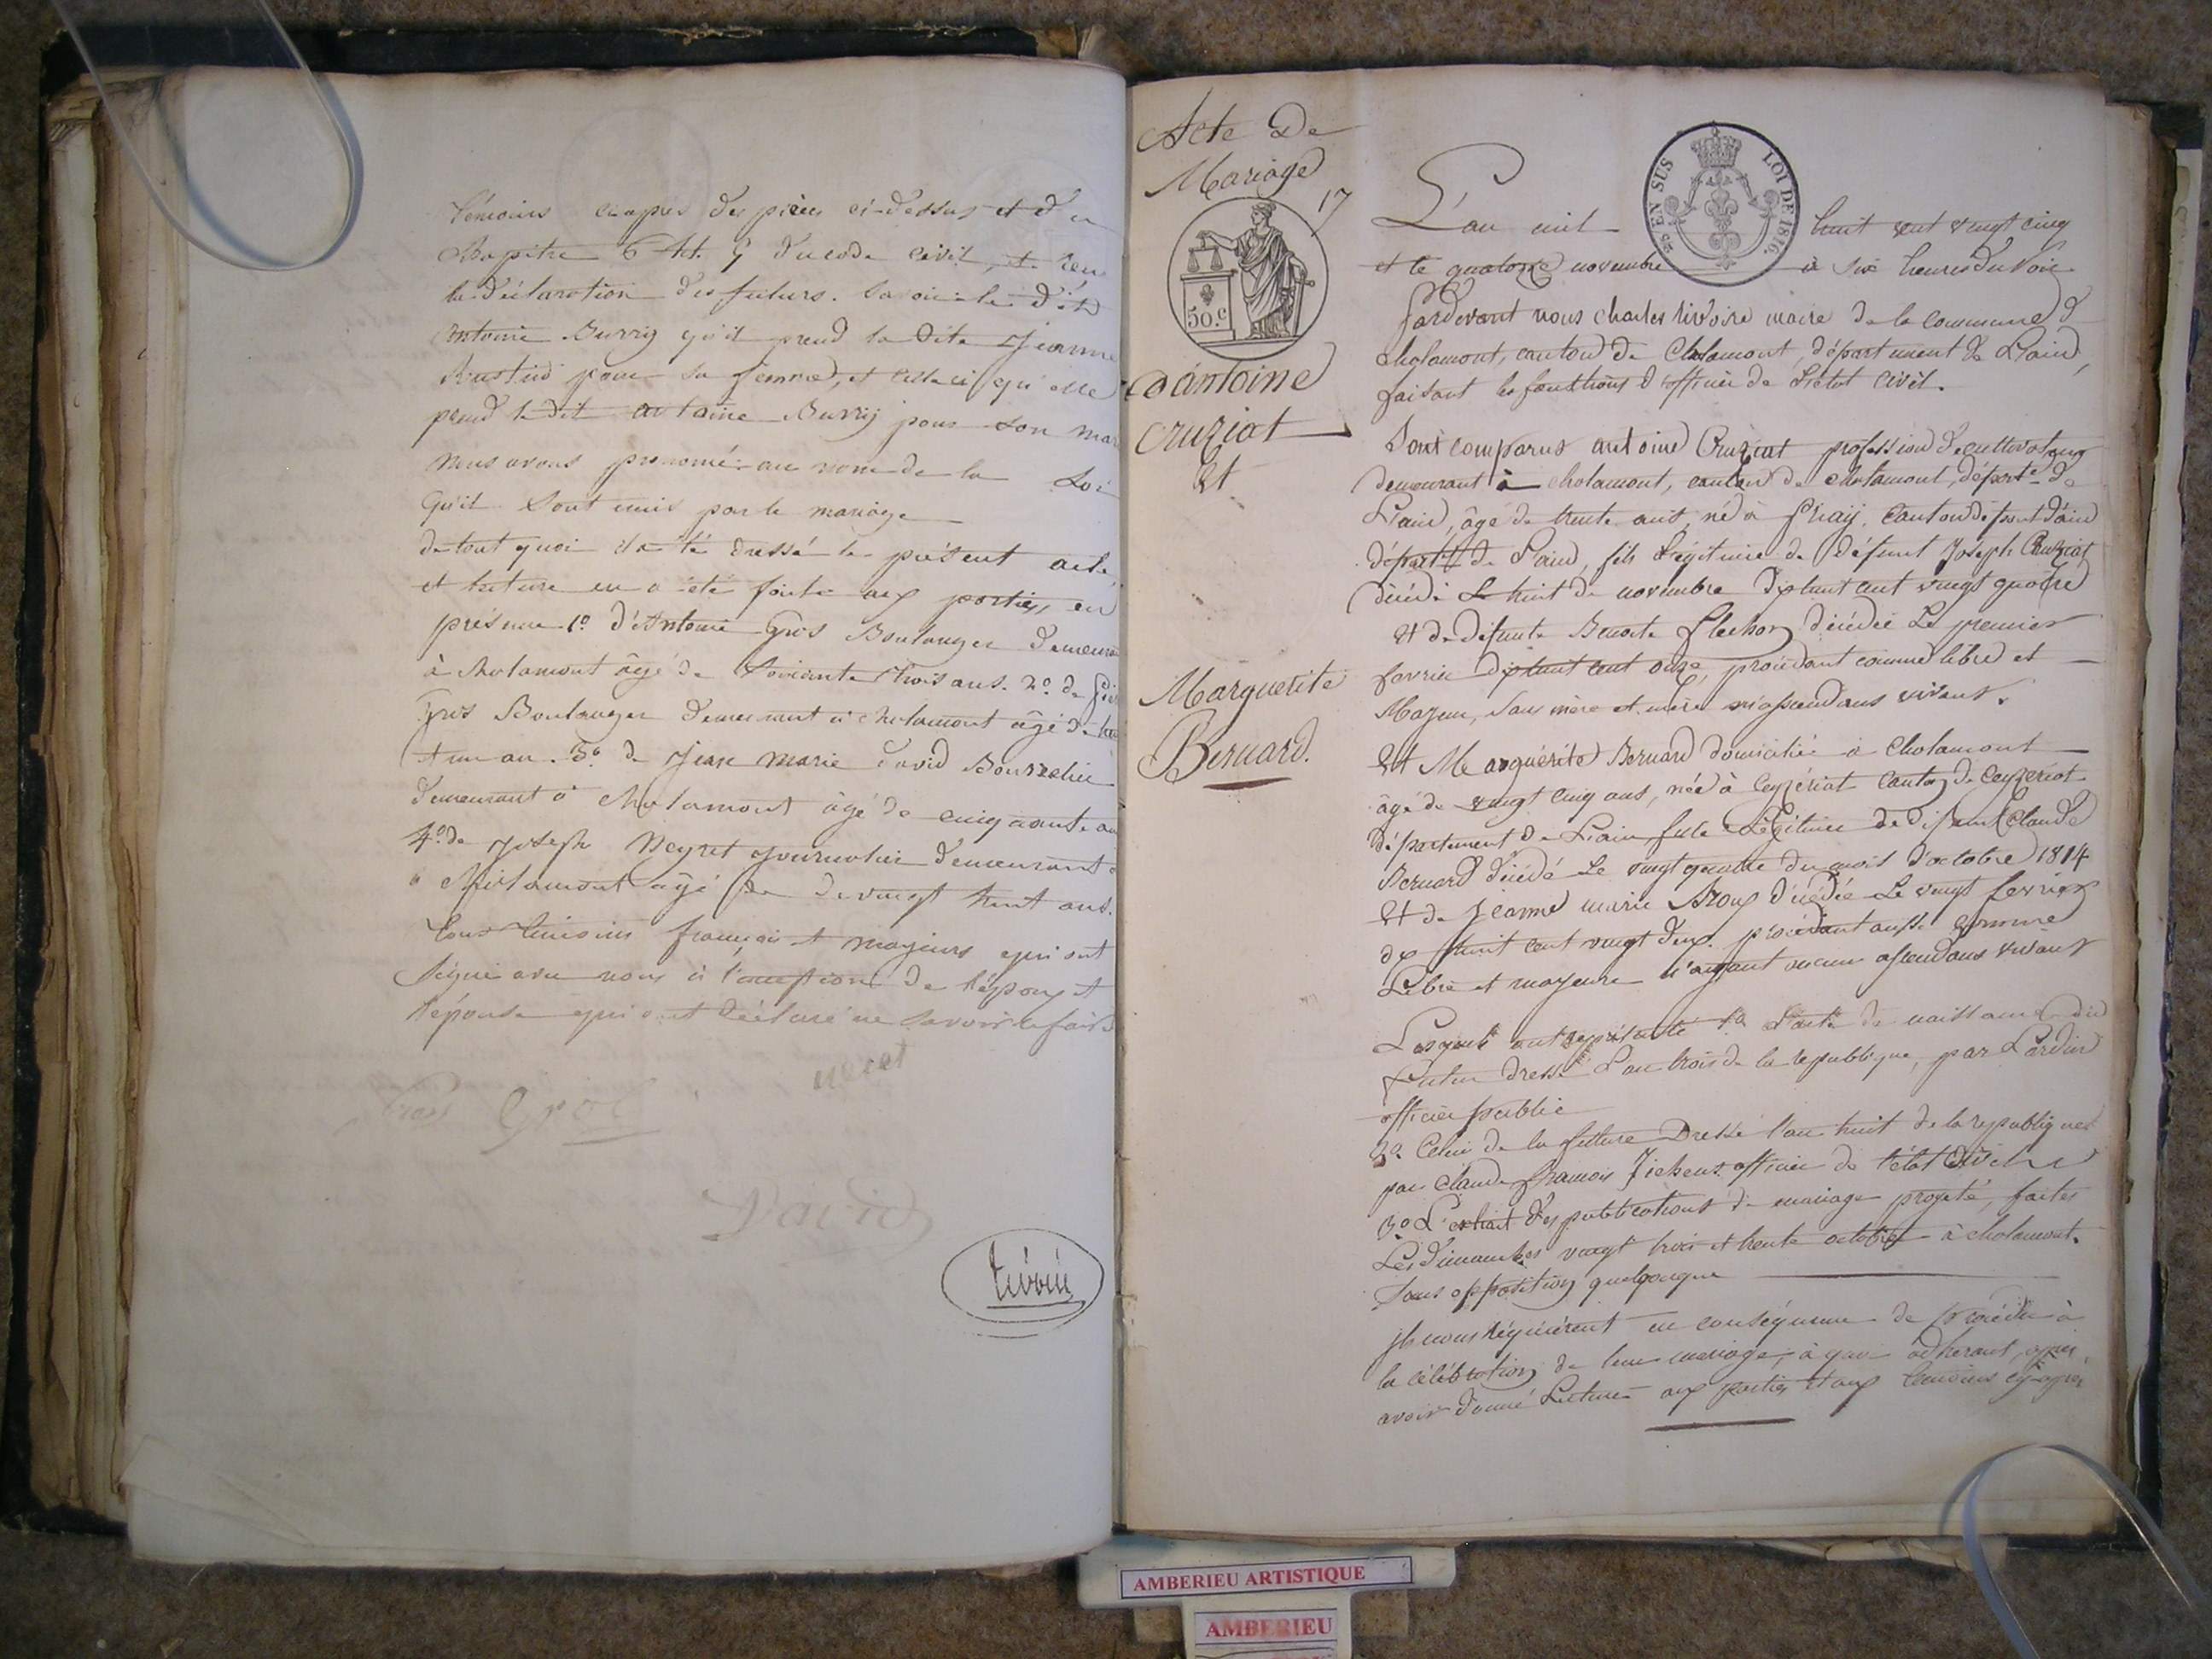 témoins ci après des pièces ci-dessus et du
Chapitre 6 tit. 5 du code civil, et reçu
la déclaration des futurs. Savoir le dit
antoine Burry qu'il prend la dite Jeanne
pour sa femme, et celle ci qu'elle
prend le dit antoine Burry pour son mari
nous avons prononcé au nom de la Loi
qu'il sont unis par le mariage
de tout quoi il a été dressé le présent acte,
et lecture en a été faite aux parties, en
présence 1º d'Antoine Gros Boulanger demeurant
à chalamont âgé de soixante trois ans. 2º. de
Gros Boulanger demeurant à chalamont âgé de
et un an. 3º de Jean Marie David Bourrelier
demeurant à chalamont âgé de cinquante ans
4º. de Joseph Neyret journalier demeurant
à Chalamont âgé de de vingt huit ans.
tous témoins français et majeurs qui ont
signé avec nous à l'exception de l'époux et
l'épouse qui ont déclaré ne savoir le faire
Gros
David
rivoire
Acte De
Mariage
17
50.c
D'antoine
cruziat
Et
Marguerite
Bernard.
25 EN SUS LOI DE 1816.
L'an mil huit cent vingt cinq
et le quatorze novembre à six heures du soir
Pardevant nous charles rivoire maire de la commune de
chalamont, canton de Chalamont, département de L'ain,
faisant les fonctions d'officier de L'état civil.
Sont comparus antoine Cruziat profession de cultivateur
demeurant à chalamont, canton de chalamont, départt. de
L'ain, âgé de trente ans, né à Priay, canton de pont d'ain
départt. de L'ain, fils Légitime de défunt Joseph Cruziat
décédé Le huit de novembre dix huit cent vingt quatre
Et de défunte Benoite Flechon décédée Le premier
fevrier dix huit cent onze, procédant comme libre et
Majeur, sans mère et mère ni ascendans vivans.
Et Marguerite Bernard domiciliée à Chalamont
âgé de vingt cinq ans, née à Ceyzériat canton de Ceyzeriat
département de L'ain fille Légitime de défunt Claude
Bernard décédé Le vingt quatre du mois d'octobre 1814
Et de Jeanne marie décédée Le vingt fevrier
dix huit cent vingt deux. procédant aussi comme
Libre et majeure n'ayant aucun ascendans vivant
Lesquels ont représenté 1º L'acte de naissance du
futur dressé L'an trois de la republique, par Lardin
officier public
2º. Celui de la future Dressé l'an huit de la republique
par Claude françois officier de l'état civil
3º L'extrait des publications de mariage projeté, faites
Les dimanches vingt trois et trente octobre à chalamont.
sans opposition quelconque
ils nous requièrent en conséquence de procéder à
la célébration de leur mariage, à quoi adhérant, après
avoir donné Lecture aux parties et aux témoins cy-après
AMBERIEU ARTISTIQUE
AMBERIEU